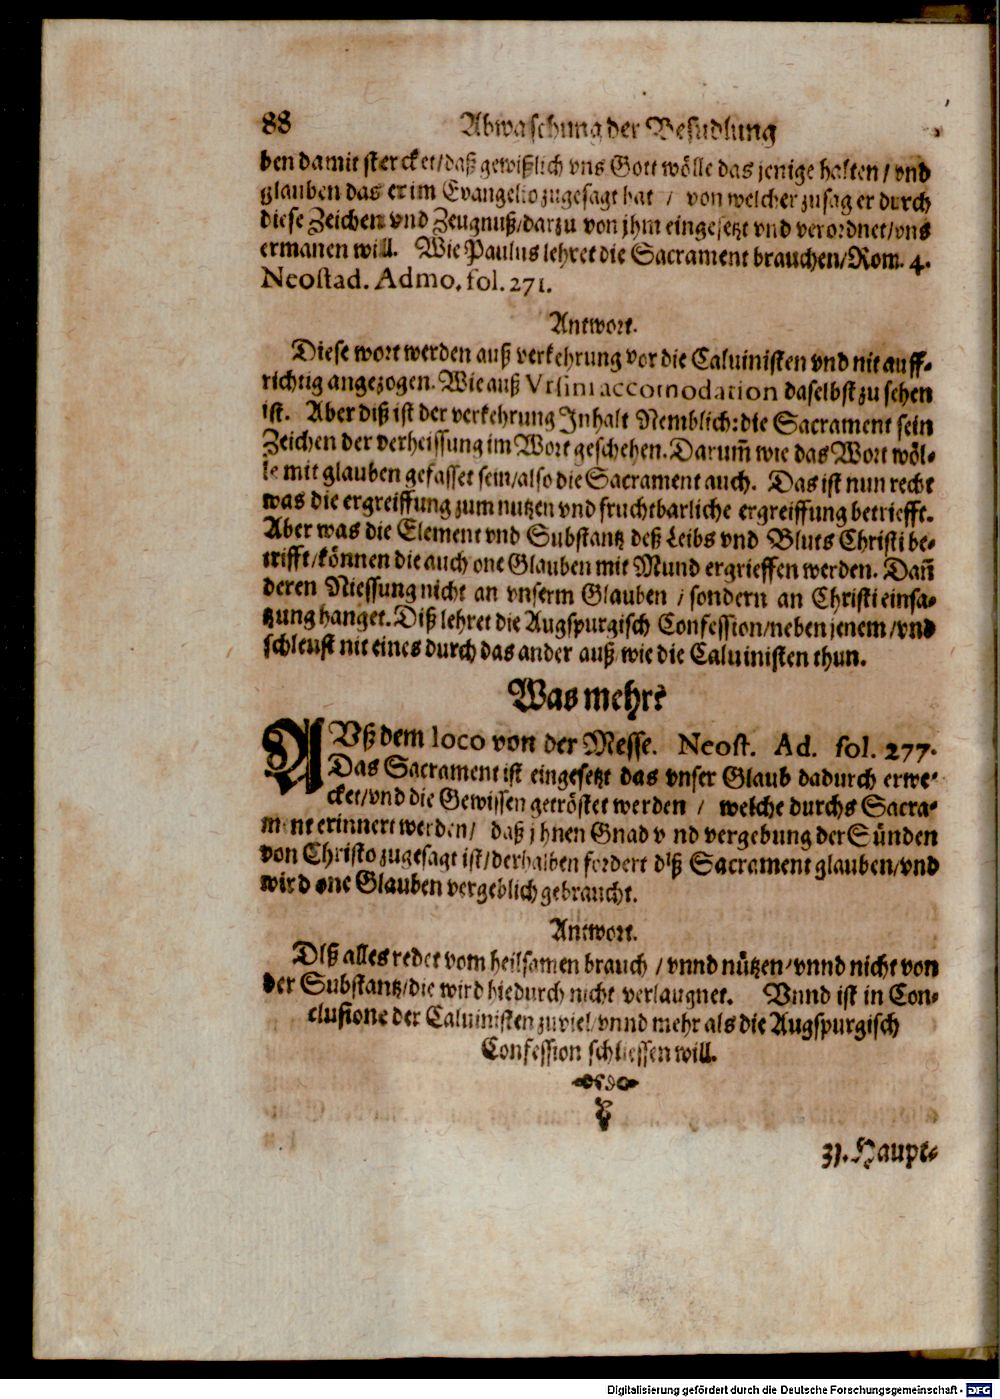 88 Abwaschung der Besudlung
ben damit stercket/daß gewißlich vns Gott wölle das jenige halten/vnd
glauben das er im Evangelio zugesagt hat / von welcher zusag er durch
diese Zeichen vnd Zeugnuß/darzu von jhm eingesetzt vnd verordnet/vns
ermanen will. Wie Paulus lehret die Sacrament brauchen/Rom. 4.
Neostad. Admo, fol. 271.
Antwort.
Diese wort werden auß verkehrung vor die Caluinisten vnd nit auff-
richtig angezogen. Wie auß Vrsini accomodation daselbst zu sehen
ist. Aber diß ist der verkehrung Inhalt Nemblich: die Sacrament sein
Zeichen der verheissung im Wort geschehen. Darum̃ wie das Wort wöl-
le mit glauben gefasset sein/also die Sacrament auch. Das ist nun recht
was die ergreiffung zum nutzen vnd fruchtbarliche ergreiffung betriefft.
Aber was die Element vnd Substantz deß Leibs vnd Bluts Christi be-
trifft/können die auch one Glauben mit Mund ergrieffen werden. Dañ
deren Niessung nicht an vnserm Glauben / sondern an Christi einsa-
tzung hanget. Diß lehret die Augspurgisch Confession/neben jenem/vnd
schleust nit eines durch das ander auß wie die Caluinisten thun.
Was mehr?
AVß dem loco von der Messe. Neost. Ad. fol. 277.
Das Sacrament ist eingesetzt das vnser Glaub dadurch erwe-
cket/vnd die Gewissen getröstet werden / welche durchs Sacra-
ment erinnert werden/ daß jhnen Gnad vnd vergebung der Sünden
von Christo zugesagt ist/derhalben fordert diß Sacrament glauben/vnd
wird one Glauben vergeblich gebraucht.
Antwort.
Diß alles redet vom heilsamen brauch / vnnd nützen/vnnd nicht von
der Substantz/die wird hiedurch nicht verlaugnet. Vnnd ist in Con-
clusione der Caluinisten zuviel/vnnd mehr als die Augspurgisch
Confession schliessen will.
31. Haupt-
Digitalisierung gefördert durch die Deutsche Forschungsgemeinschaft - DFG